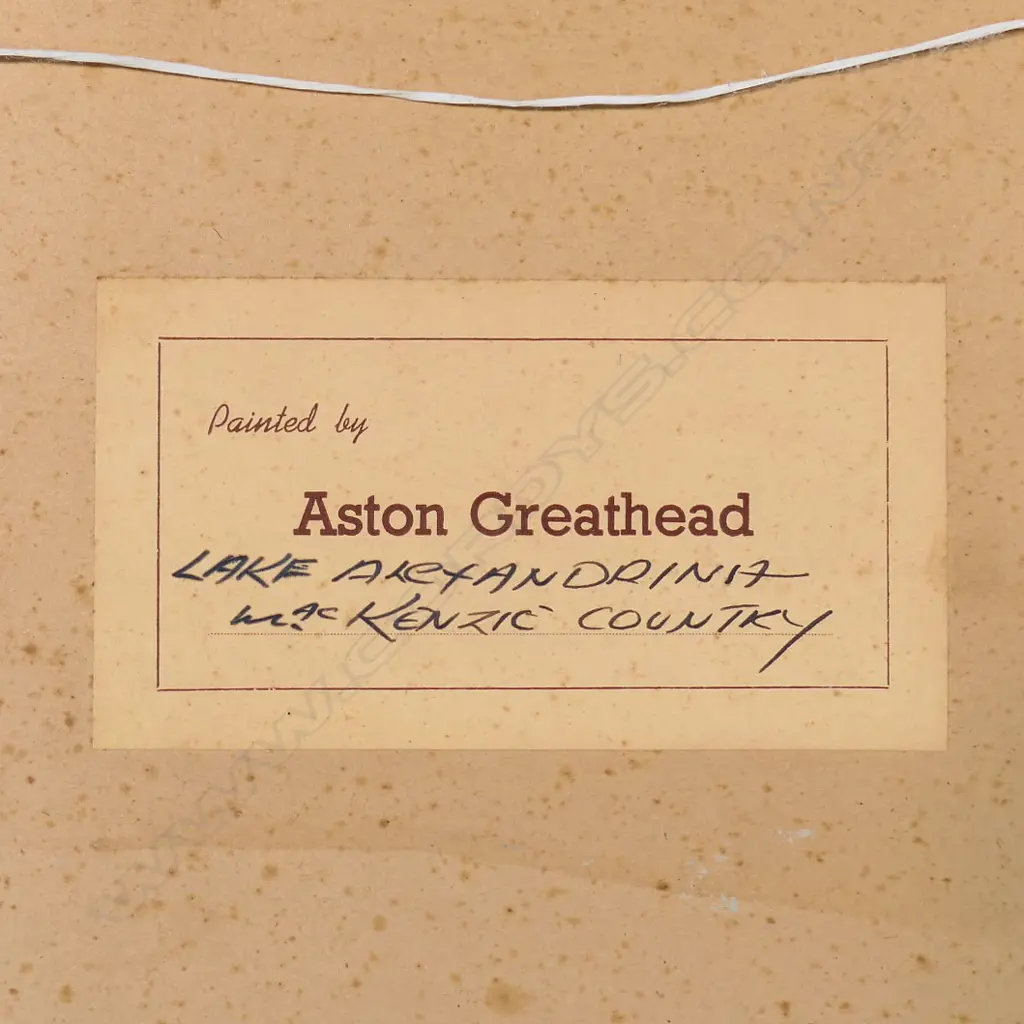 Painted by
Aston Greathead
LAKE ALEXANDRINA
MacKENZIE COUNTRY